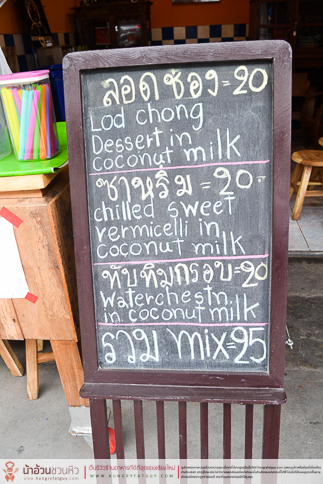 ลอดช่อง=20
Lod chong
Dessert in
coconut milk
ซาหริ่ม=20
chilled sweet
vermicelli in
coconut milk
ทับทิมกรอบ=20
Waterchestn.
in coconut milk
รวม mix=25
น้าอ้วนชวนหิว
www.hungryfatguy.com